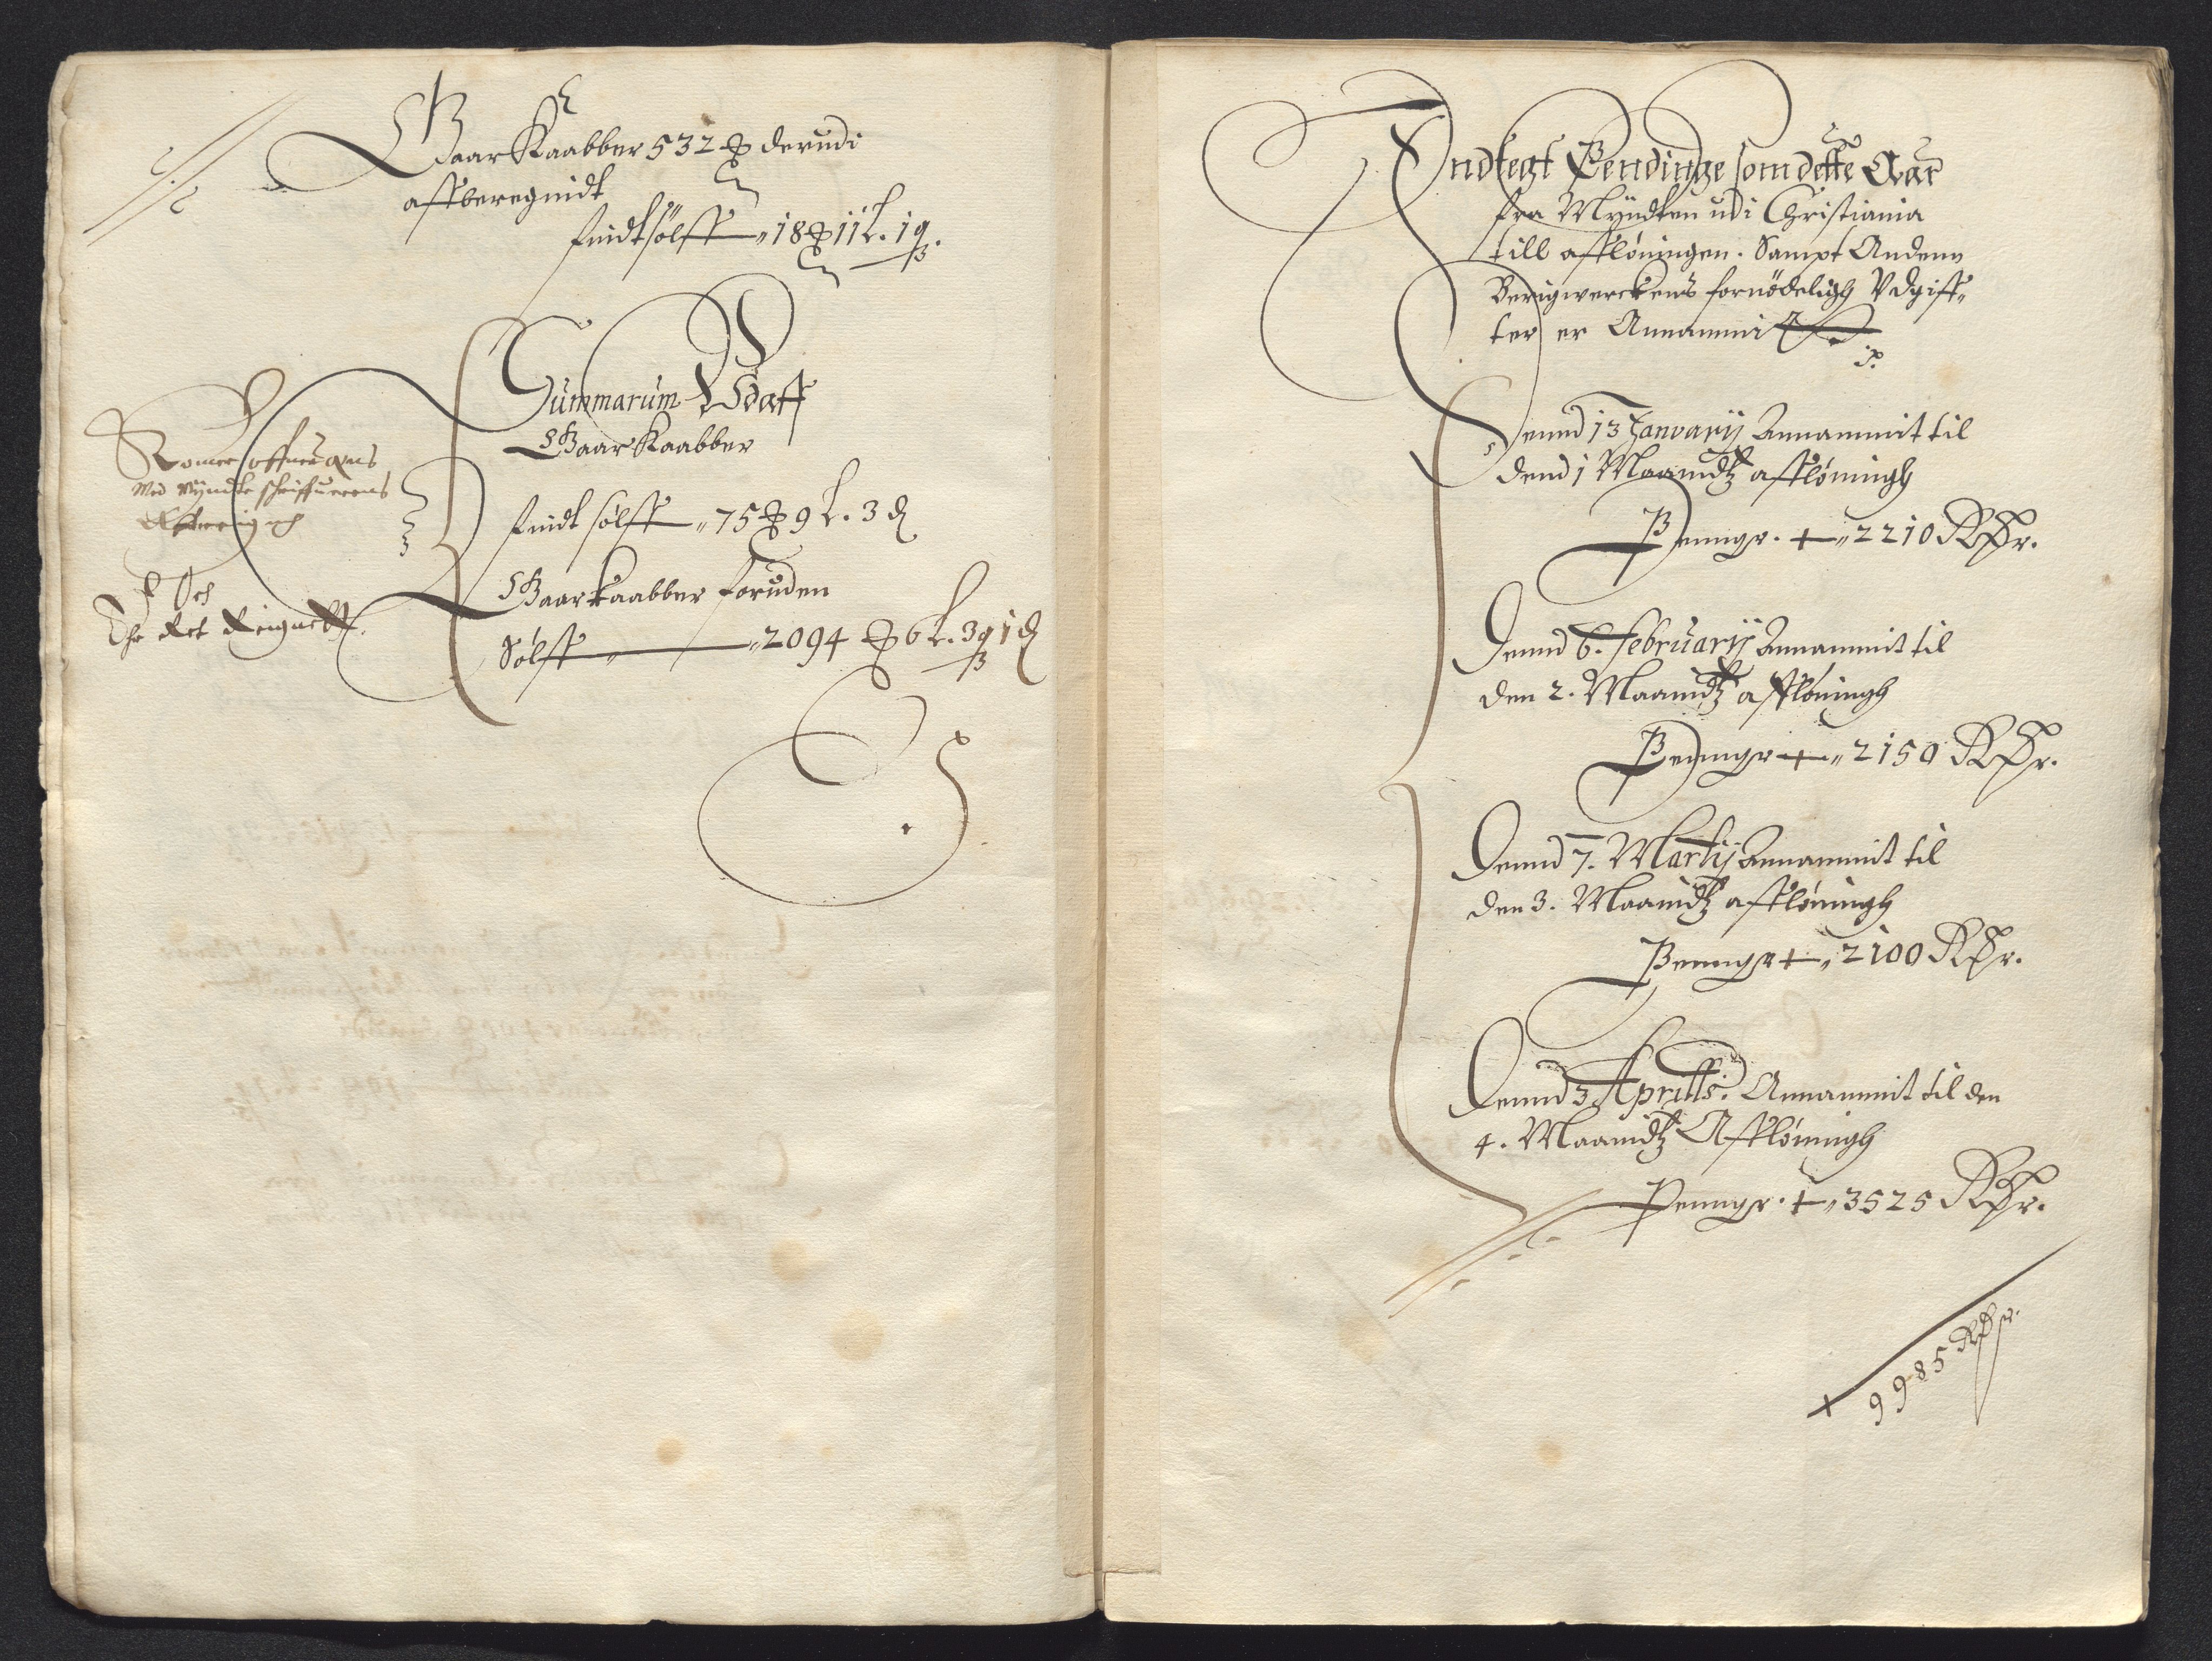 Gaar Kaabber 532 ℔ derudi
affberegnidt
findt sølff — 18 ℔ 11 L. 1 q.
Summarum Udaff
Gaar Kaabber
findt sølff — 75 ℔ 9 L. 3 ₰
Gaarkaabber foruden
Sølff — 2094 ℔ 6 L. 3 q 1 ₰
Med Myndte schriffuerens
Och
Ehr Ret Reignett.
Indtegt Pendinge som dette Aar
fra Myndten udi Christiania
till afflöningen. Sampt Anden
Bergwerckens fornödeligh Vdgiff„
ter er Annammit
Dennd 13 Januarij Annammit til
dend 1 Maanidtz afflöningh
Penngr. +„ 2210 Rdr.
Dennd 6. februarij Annammit til
den 2. Maanidtz afflöningh
Penngr +„ 2150 Rdr.
Dennd 7. Martij Annammit til
den 3. Maanidtz afflöningh
Penngr +„ 2100 Rdr.
Dennd 3 Aprillis. Annammit til den
4. Maanidtz Afflöningh
Penngr. +„ 3525 Rdr.
+ 9985 Rdr.